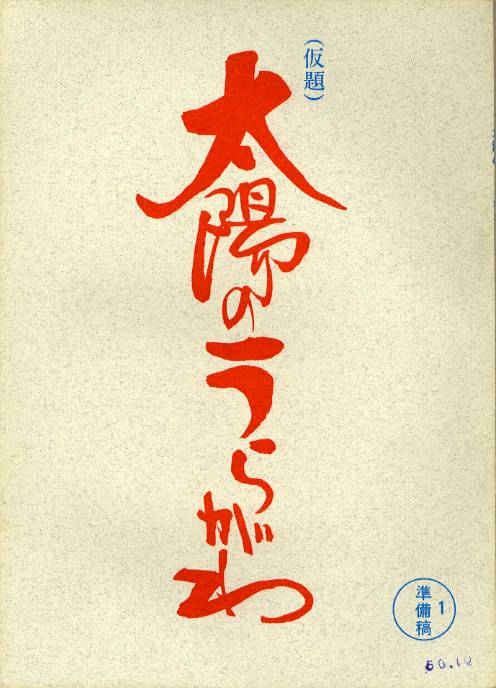 （仮題）
太陽のうらがわ
準備稿
1
50.12